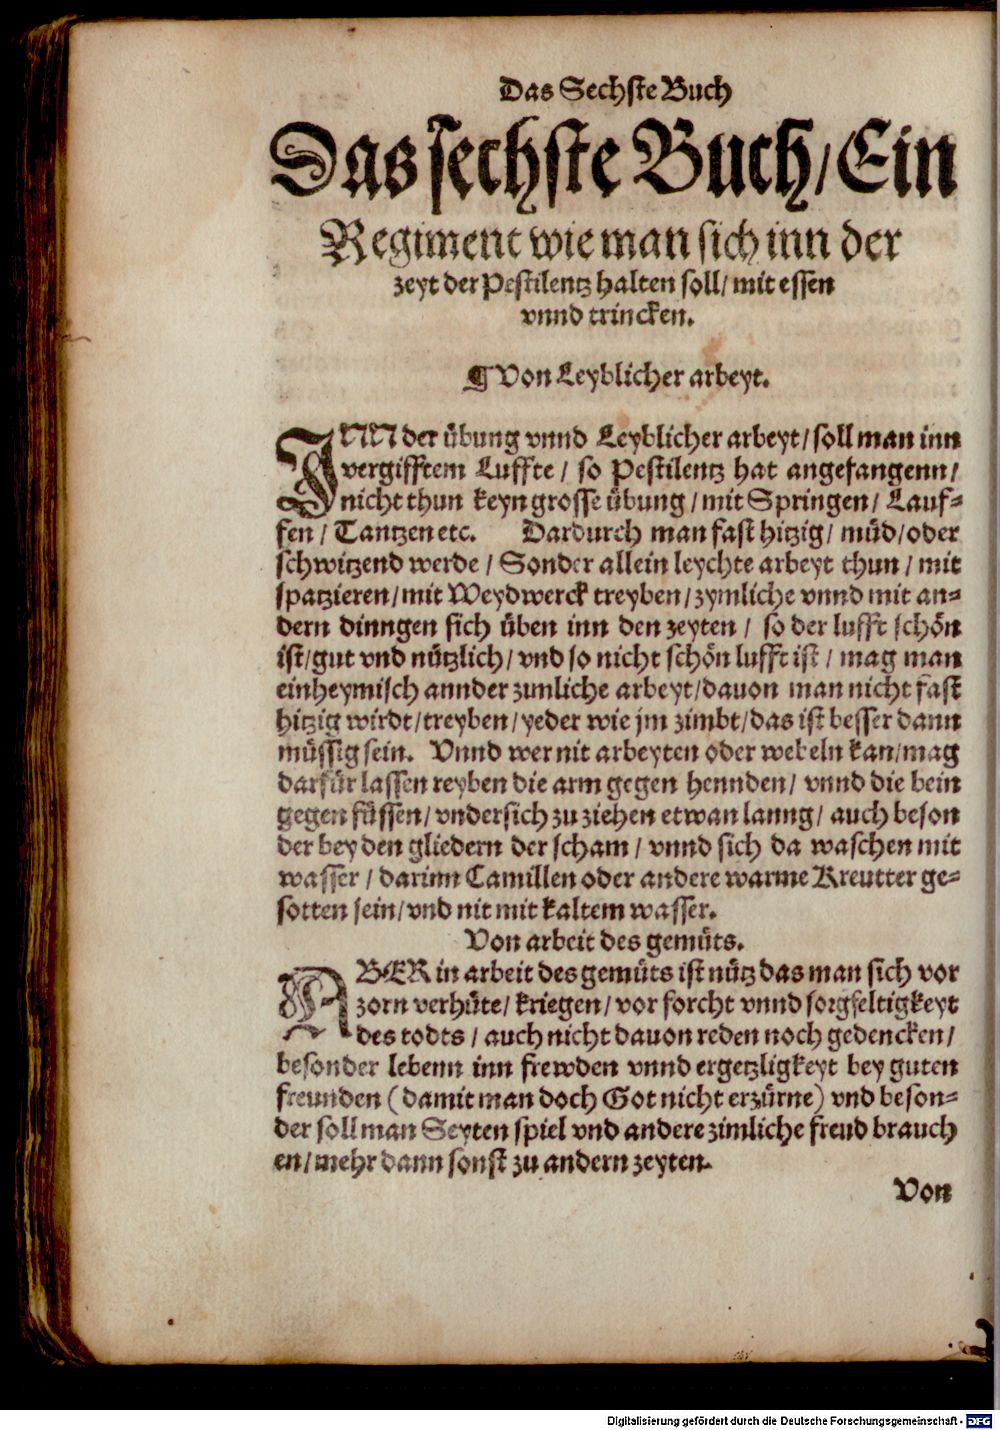 Das Sechste Buch
Das sechste Buch/ Ein
Regiment wie man sich inn der
zeyt der Pestilentz halten soll/ mit essen
vnnd trincken.
¶ Von Leyblicher arbeyt.
INN der übung vnnd Leyblicher arbeyt/ soll man inn
vergifftem Luffte/ so Pestilentz hat angefangenn/
nicht thun keyn grosse übung/ mit Springen/ Lauf-
fen/ Tantzen etc. Dardurch man fast hitzig/ müd/ oder
schwitzend werde/ Sonder allein leychte arbeyt thun/ mit
spatzieren/ mit Weydwerck treyben/ zymliche vnnd mit an-
dern dinngen sich üben inn den zeyten/ so der lufft schön
ist/ gut vnd nützlich/ vnd so nicht schön lufft ist/ mag man
einheymisch annder zimliche arbeyt/ dauon man nicht fast
hitzig wirdt/ treyben/ yeder wie jm zimbt/ das ist besser dann
müssig sein. Vnnd wer nit arbeyten oder webeln kan/ mag
darfür lassen reyben die arm gegen hennden/ vnnd die bein
gegen füssen/ vndersich zu ziehen etwan lanng/ auch beson
der bey den gliedern der scham/ vnnd sich da waschen mit
wasser/ darinn Camillen oder andere warme Kreutter ge-
sotten sein/ vnd nit mit kaltem wasser.
Von arbeit des gemüts.
ABER in arbeit des gemüts ist nütz das man sich vor
zorn verhüte/ kriegen/ vor forcht vnnd sorgfeltigkeyt
des todts/ auch nicht dauon reden noch gedencken/
besonder lebenn inn frewden vnnd ergetzligkeyt bey guten
freunden (damit man doch Got nicht erzürne) vnd beson-
der soll man Seyten spiel vnd andere zimliche freud brauch
en/ mehr dann sonst zu andern zeyten.
Von
Digitalisierung gefördert durch die Deutsche Forschungsgemeinschaft - DFG